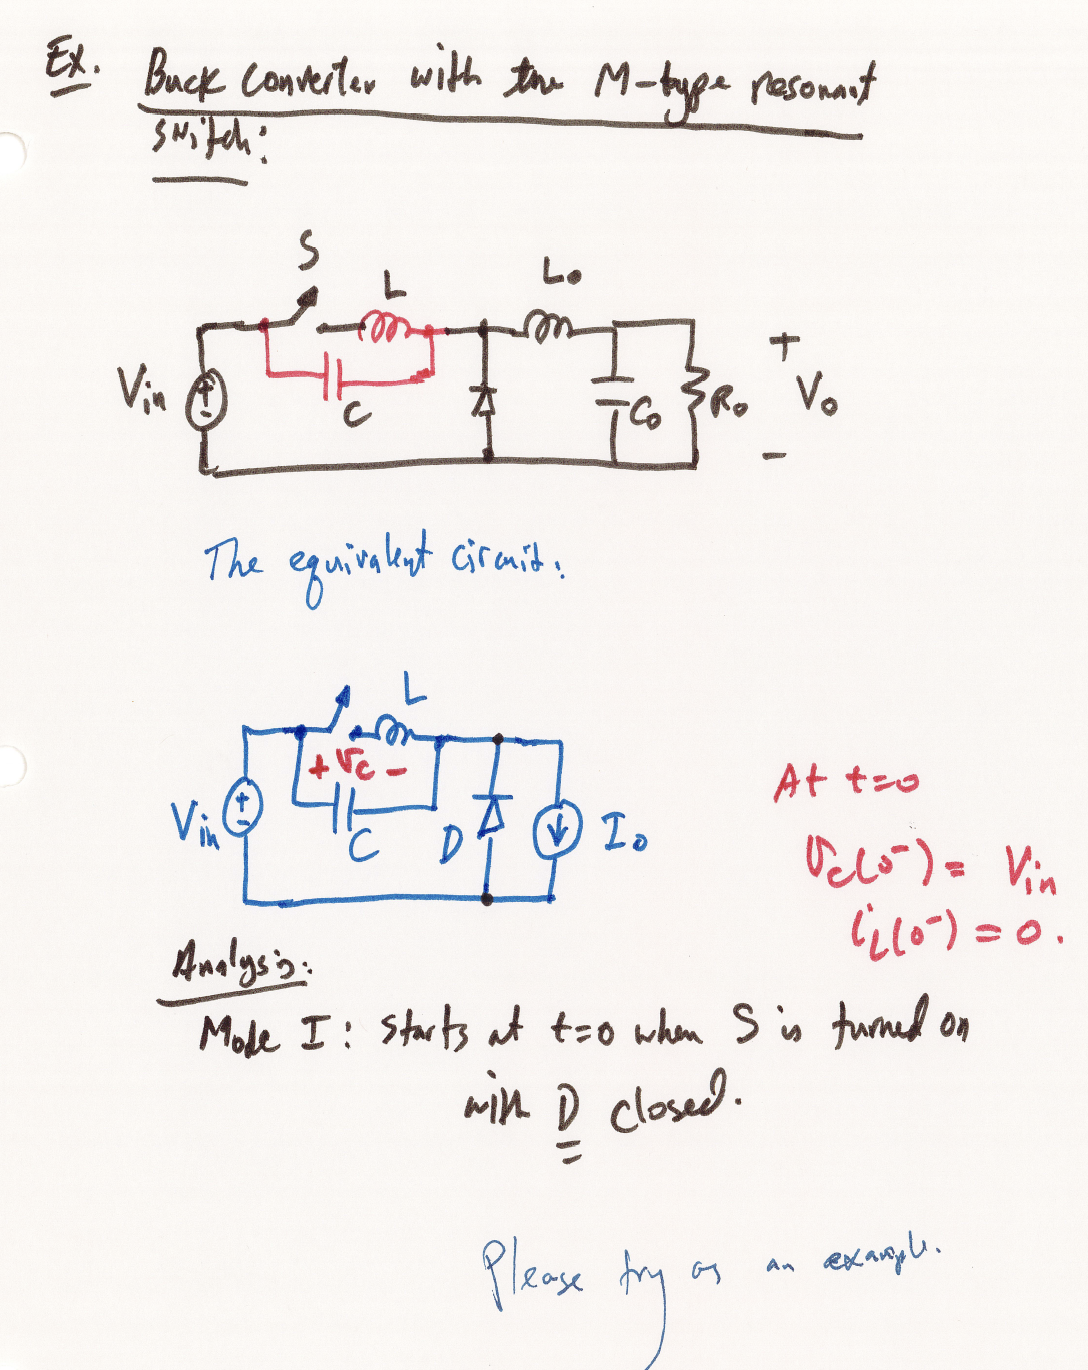 Ex. Buck Converter with the M-type resonant
switch:
S
L
Lo
Vin
C
Co
Ro
+
Vo
-
The equivalent circuit:
L
+ Vc -
Vin
C
D
Io
At t=0
Vc(0-) = Vin
iL(0-) = 0.
Analysis:
Mode I: Starts at t=0 when S is turned on
with D closed.
Please try as an example.